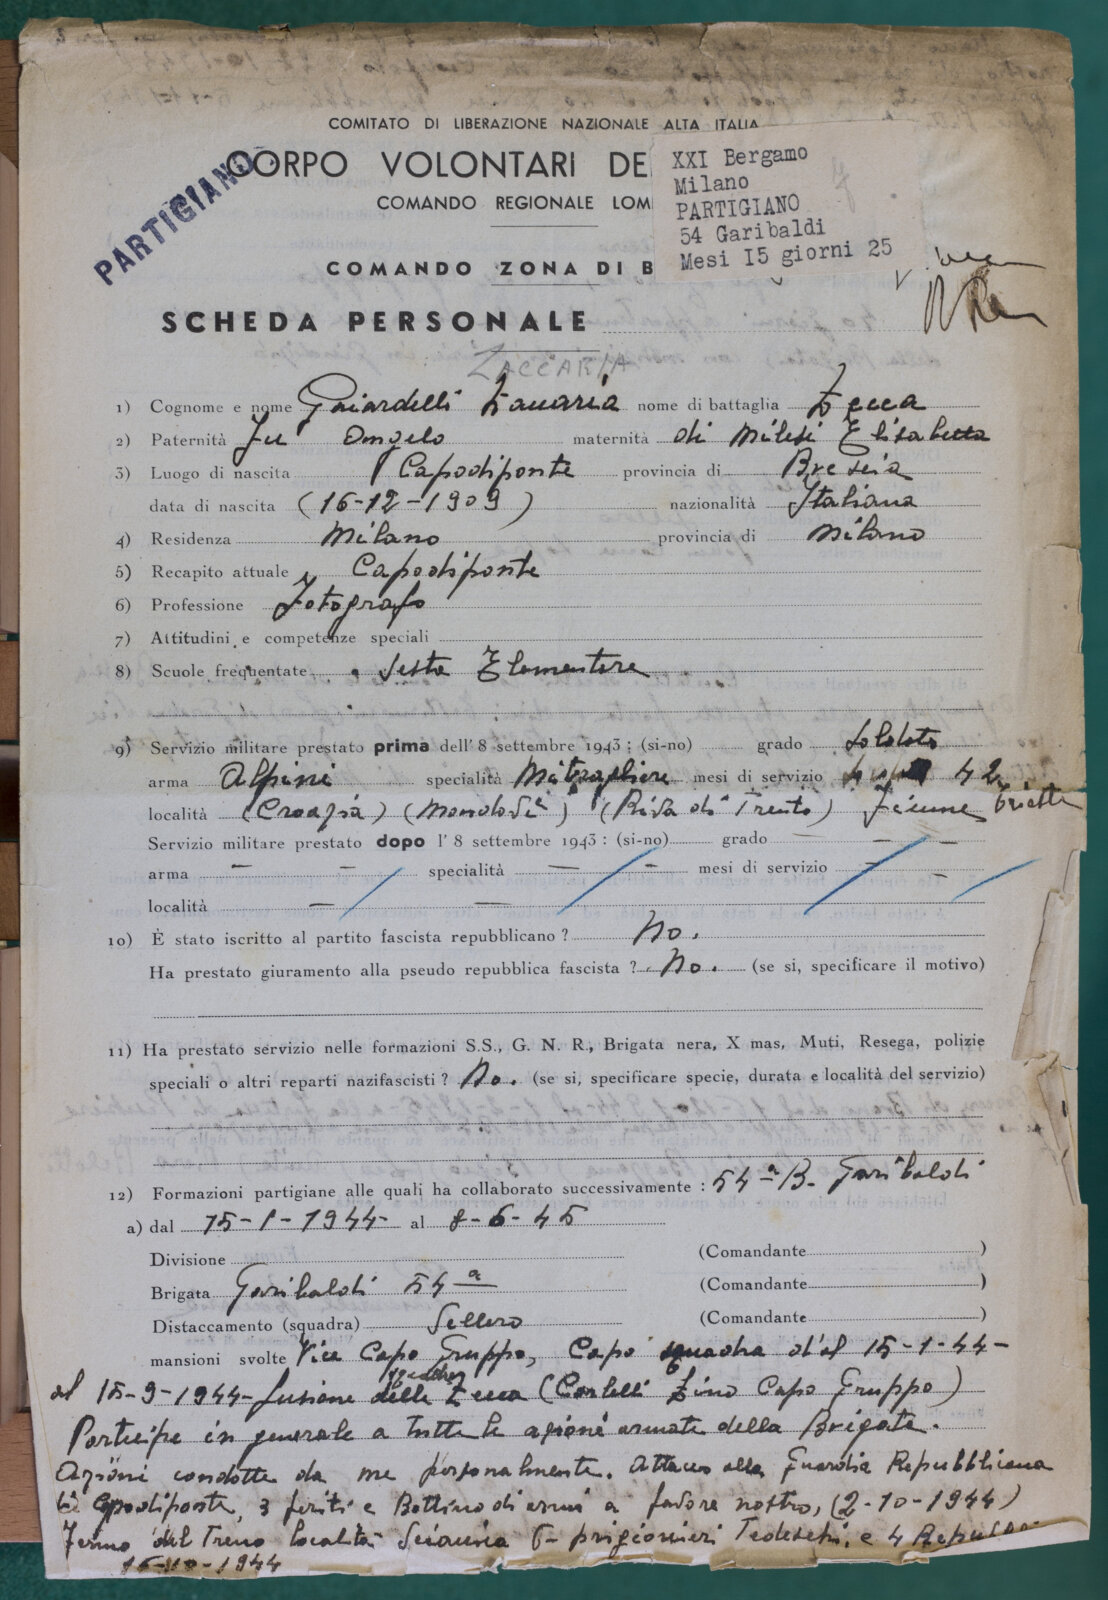 COMITATO DI LIBERAZIONE NAZIONALE ALTA ITALIA
CORPO VOLONTARI DE
COMANDO REGIONALE LOM
COMANDO ZONA DI B
PARTIGIANO
XXI Bergamo
Milano
PARTIGIANO
54 Garibaldi
Mesi I5 giorni 25
SCHEDA PERSONALE
ZACCARIA
1) Cognome e nome Gaiardelli Zaccaria nome di battaglia Zecca
2) Paternità Fu Angelo maternità di Milesi Elisabetta
3) Luogo di nascita Capodiponte provincia di Brescia
data di nascita (16-12-1909) nazionalità Italiana
4) Residenza Milano provincia di Milano
5) Recapito attuale Capodiponte
6) Professione Fotografo
7) Attitudini e competenze speciali
8) Scuole frequentate Sesta Elementare
9) Servizio militare prestato prima dell' 8 settembre 1943 : (si-no) grado Soldato
arma Alpini specialità Mitragliere mesi di servizio 42
località (Croazia) (Mondovì) (Riva di Trento) Fiume Trieste
Servizio militare prestato dopo l' 8 settembre 1943 : (si-no) — grado — —
arma — — specialità — — mesi di servizio — —
località — —
10) È stato iscritto al partito fascista repubblicano ? No.
Ha prestato giuramento alla pseudo repubblica fascista ? No. (se si, specificare il motivo)
11) Ha prestato servizio nelle formazioni S.S., G. N. R., Brigata nera, X mas, Muti, Resega, polizie
speciali o altri reparti nazifascisti ? No. (se si, specificare specie, durata e località del servizio)
12) Formazioni partigiane alle quali ha collaborato successivamente : 54ª B. Garibaldi
a) dal 15-1-1944 al 8-6-45
Divisione (Comandante )
Brigata Garibaldi 54ª (Comandante )
Distaccamento (squadra) Sellero (Comandante )
mansioni svolte Vice Capo Gruppo, Capo squadra dal 15-1-44-
al 15-9-1944- fusione delle Zecca ( Zino Capo Gruppo)
Partecipe in generale a tutte le azione armate della Brigata.
Azioni condotte da me personalmente. Attacco alla Guardia Repubblicana
di Capodiponte, 3 feriti e Bottino di armi a favore nostro, (2-10-1944)
Fermo del Treno località 6- prigionieri Tedeschi, e 4
16-10-1944